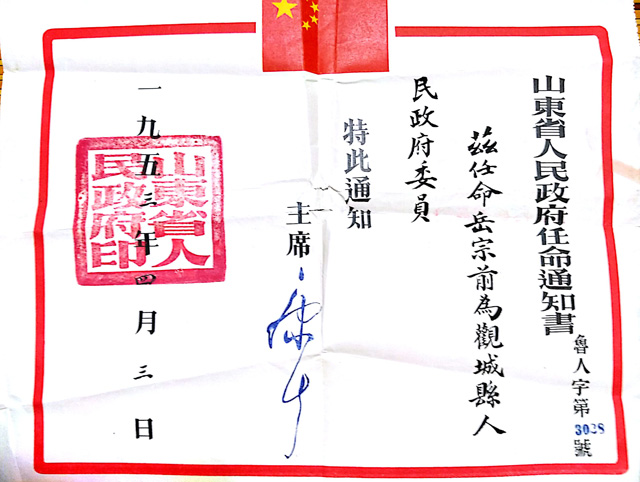 山東省人民政府任命通知書
魯人字第3028號
茲任命岳宗前為觀城縣人
民政府委員
特此通知
主席
一九五三年四月三日
山東省人
民政府印